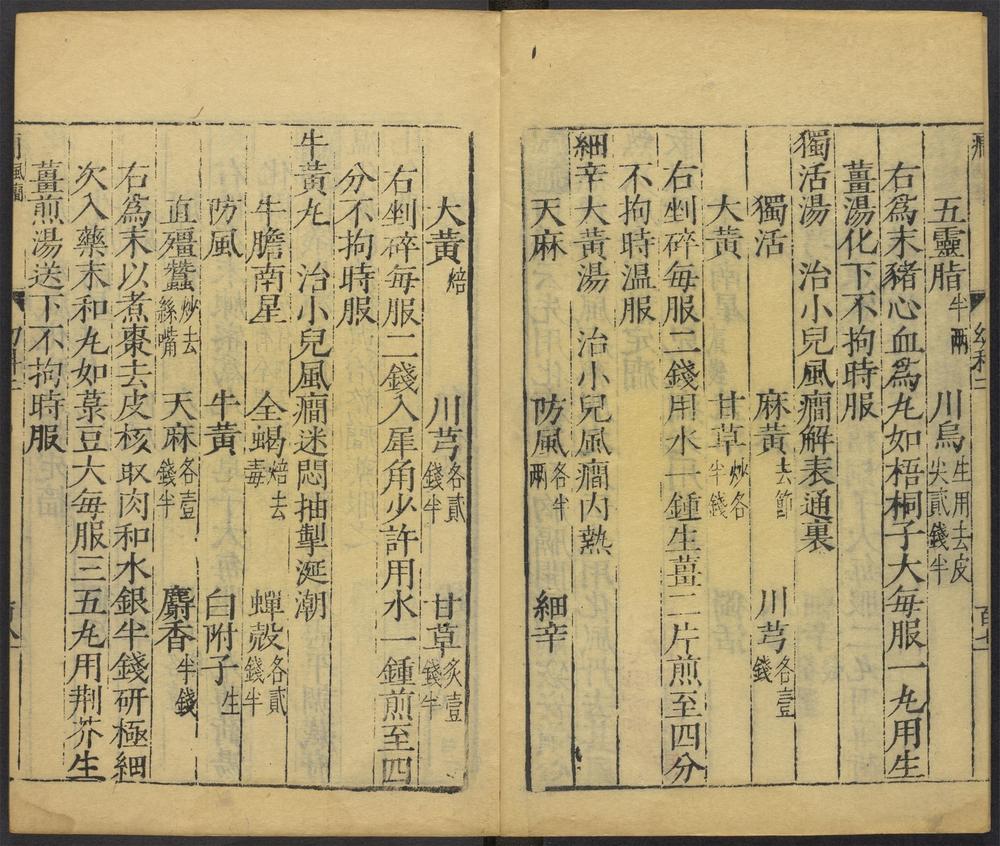 五靈脂半兩 川烏生用去皮尖貳錢半
右爲末豬心血爲丸如梧桐子大每服一丸用生
薑湯化下不拘時服
獨活湯 治小兒風癎解表通裏
獨活 麻黃去節 川芎各壹錢
大黃 甘草炒各半錢
右剉碎每服二錢用水一鍾生薑二片煎至四分
不拘時温服
細辛大黃湯 治小兒風癎内熱
天麻 防風各半兩 細辛
大黃焙 川芎各貳錢半 甘草炙壹錢半
右剉碎每服二錢入犀角少許用水一鍾煎至四
分不拘時服
牛黃丸 治小兒風癎迷悶抽掣涎潮
牛膽南星 全蝎焙去毒 蟬殻各貳錢半
防風 牛黃 白附子生
直殭蠶炒去絲嘴 天麻各壹錢半 麝香半錢
右爲末以煮棗去皮核取肉和水銀半錢研極細
次入藥末和丸如菉豆大每服三五丸用荆芥生
薑煎湯送下不拘時服